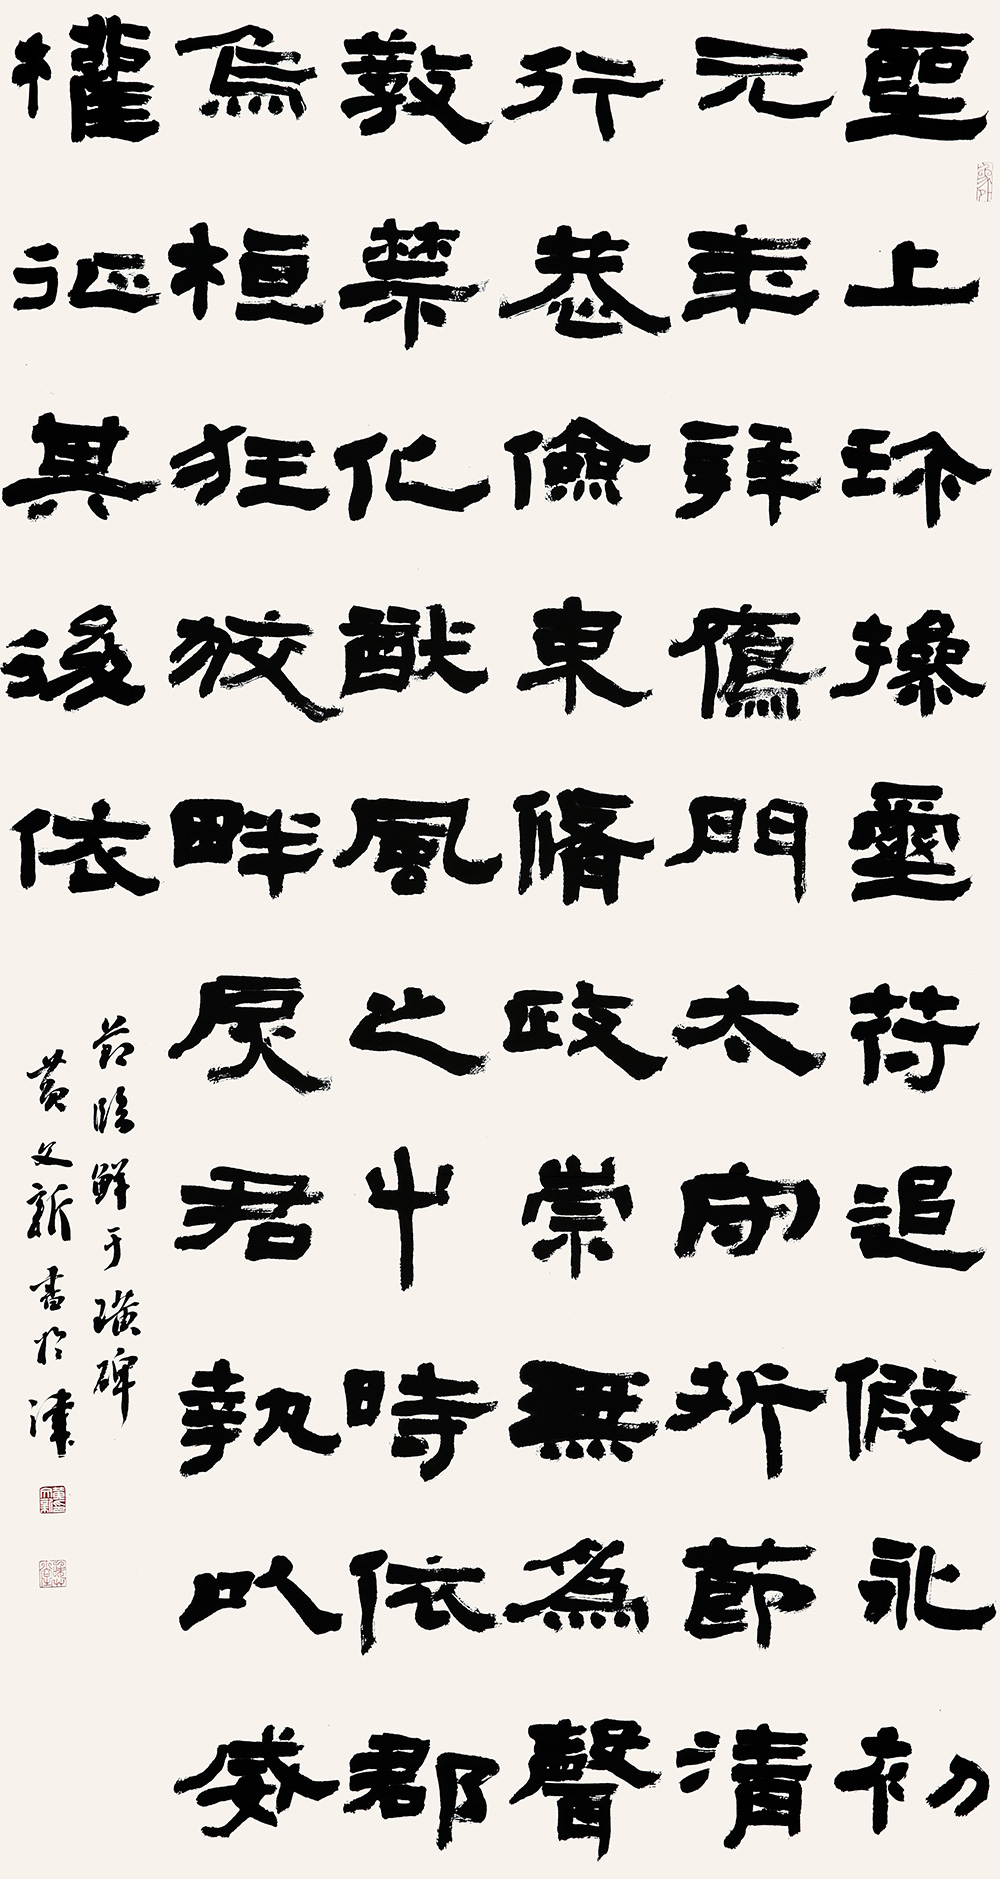 聖上珎操璽苻追假永初
元年拜鴈門太守折節清
行恭儉束脩政崇無為聲
教禁化猷風之中時依郡
烏桓狂狡畔戾君執以威
權征其後依
節臨鮮于璜碑
黃文新書於津